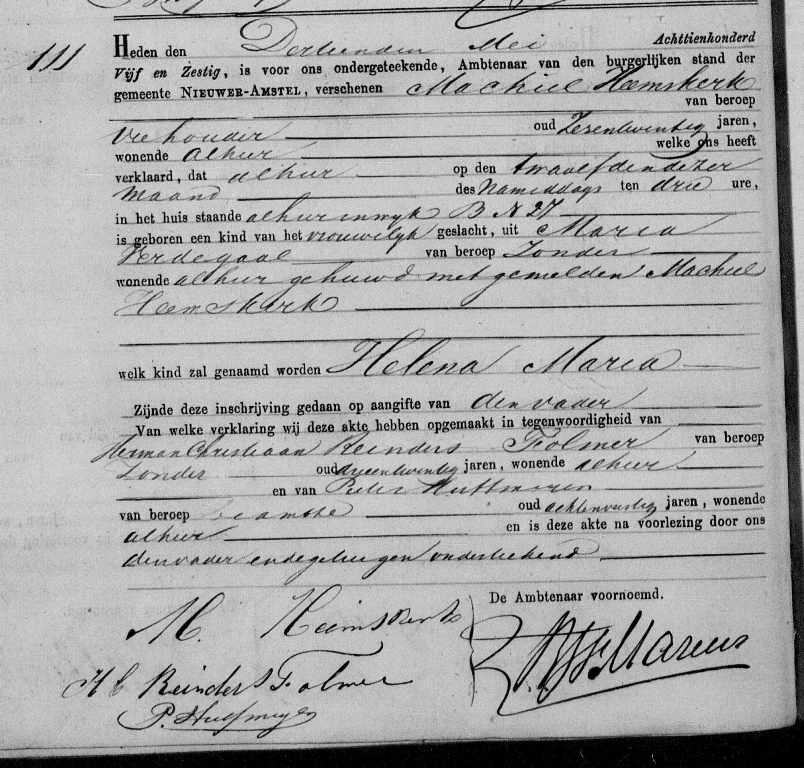 111
Heden den Dertienden Mei Achttienhonderd
Vijf en Zestig, is voor ons ondergeteekende, Ambtenaar van den burgerlijken stand der
gemeente NIEUWER-AMSTEL, verschenen Machiel Heemskerk
van beroep
Veehouder oud Zesentwintig jaren,
wonende alhier welke ons heeft
verklaard, dat alhier op den twaalfden dezer
Maand des Nameddags ten drie ure,
in het huis staande alhier in wyk B N 27
is geboren een kind van het vrouwelyk geslacht, uit Maria
Verdegaal van beroep Zonder
wonende alhier gehuwd met gemelden Machiel
Heemskerk
welk kind zal genaamd worden Helena Maria
Zijnde deze inschrijving gedaan op aangifte van den vader
Van welke verklaring wij deze akte hebben opgemaakt in tegenwoordigheid van
Herman Christiaan Reinders Folmer van beroep
Zonder oud drieentwintig jaren, wonende alhier
en van Pieter
van beroep beambte oud achtenveertig jaren, wonende
alhier en is deze akte na voorlezing door ons
den vader en de getuigen onderteekend
De Ambtenaar voornoemd.
M. Heemskerk
H C Reinders Folmer
P.